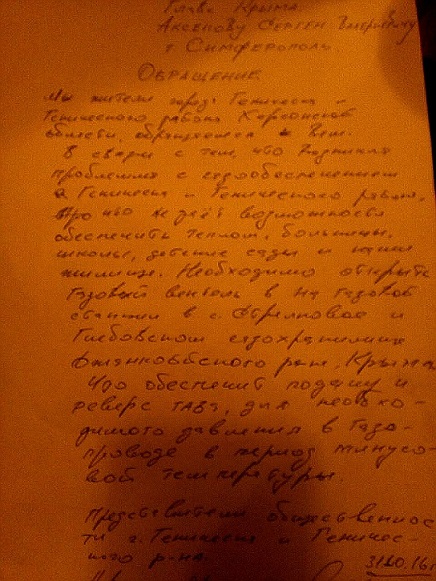 Главе Крыма
Аксенову Сергею Валериевичу
г. Симферополь
Обращение.
Мы жители города Геническа и
Генического района Херсонской
области, обращаемся к Вам.
В связи с тем, что возникла
проблема с газообеспечением
г. Геническа и Генического района,
что не даёт возможности
обеспечить теплом, больницы,
школы, детские сады и наши
жилища. Необходимо открыть
газовый вентель в на газовой
станции в с. Стрелковое и
Глебовском газохранилище
района, Крыма
Что обеспечит подачу и
реверс газа, для необхо-
димого давления в газо-
проводе в период минусо-
вой температуры.
Представители общественнос-
ти г. Геническа и Геничес-
кого р-на